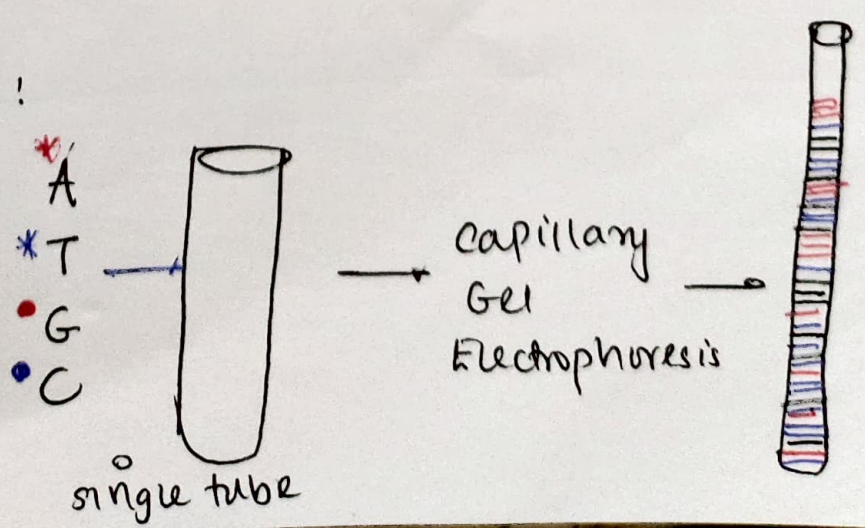 !
A
T
G
C
single tube
Capillary
Gel
Electrophoresis